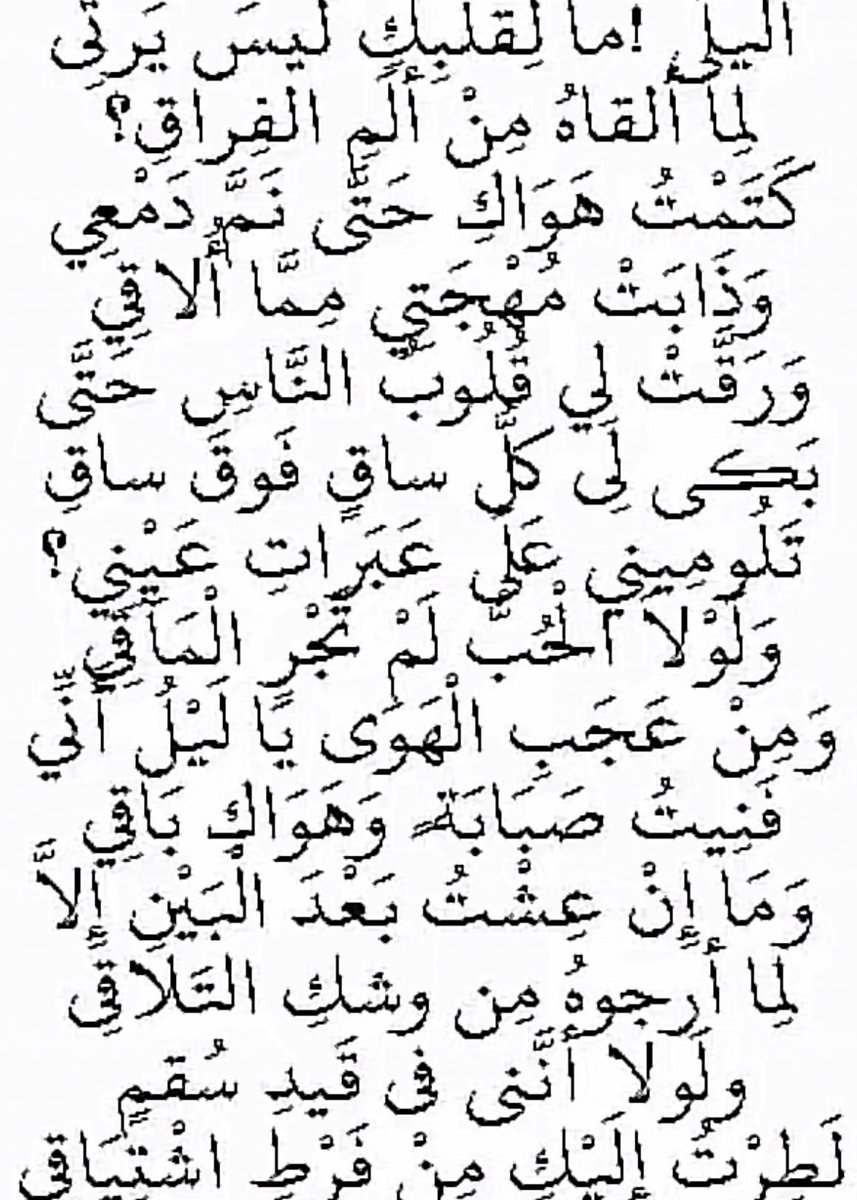 أليلى !ما لِقَلبِكِ لَيسَ يَرثِى
لِما أَلقاهُ مِنْ أَلَمِ الفِراقِ؟
كَتَمْتُ هَوَاكِ حَتَّى نَمَّ دَمْعِي
وَذَابَتْ مُهْجَتِي مِمَّا أُلاقِي
وَرَقَّتْ لِي قُلُوبُ النَّاسِ حَتَّى
بَكَى لِى كلُّ ساقٍ فَوقَ ساقِ
تَلُومِينِي عَلَى عَبَرَاتِ عَيْنِي؟
وَلَوْلا الْحُبُّ لَمْ تَجْرِ الْمَآقِي
وَمِنْ عَجَبِ الْهَوَى يَا لَيْلُ أَنِّي
فَنِيتُ صَبَابَةً وَهَوَاكِ بَاقِي
وَمَا إِنْ عِشْتُ بَعْدَ الْبَيْنِ إِلاَّ
لِما أَرجوهُ مِن وشكِ التَلاقِي
ولَولا أَنَّنى فى قَيدِ سُقمٍ
لَطِرْتُ إِلَيْكِ مِنْ فَرْطِ اشْتِيَاقِي